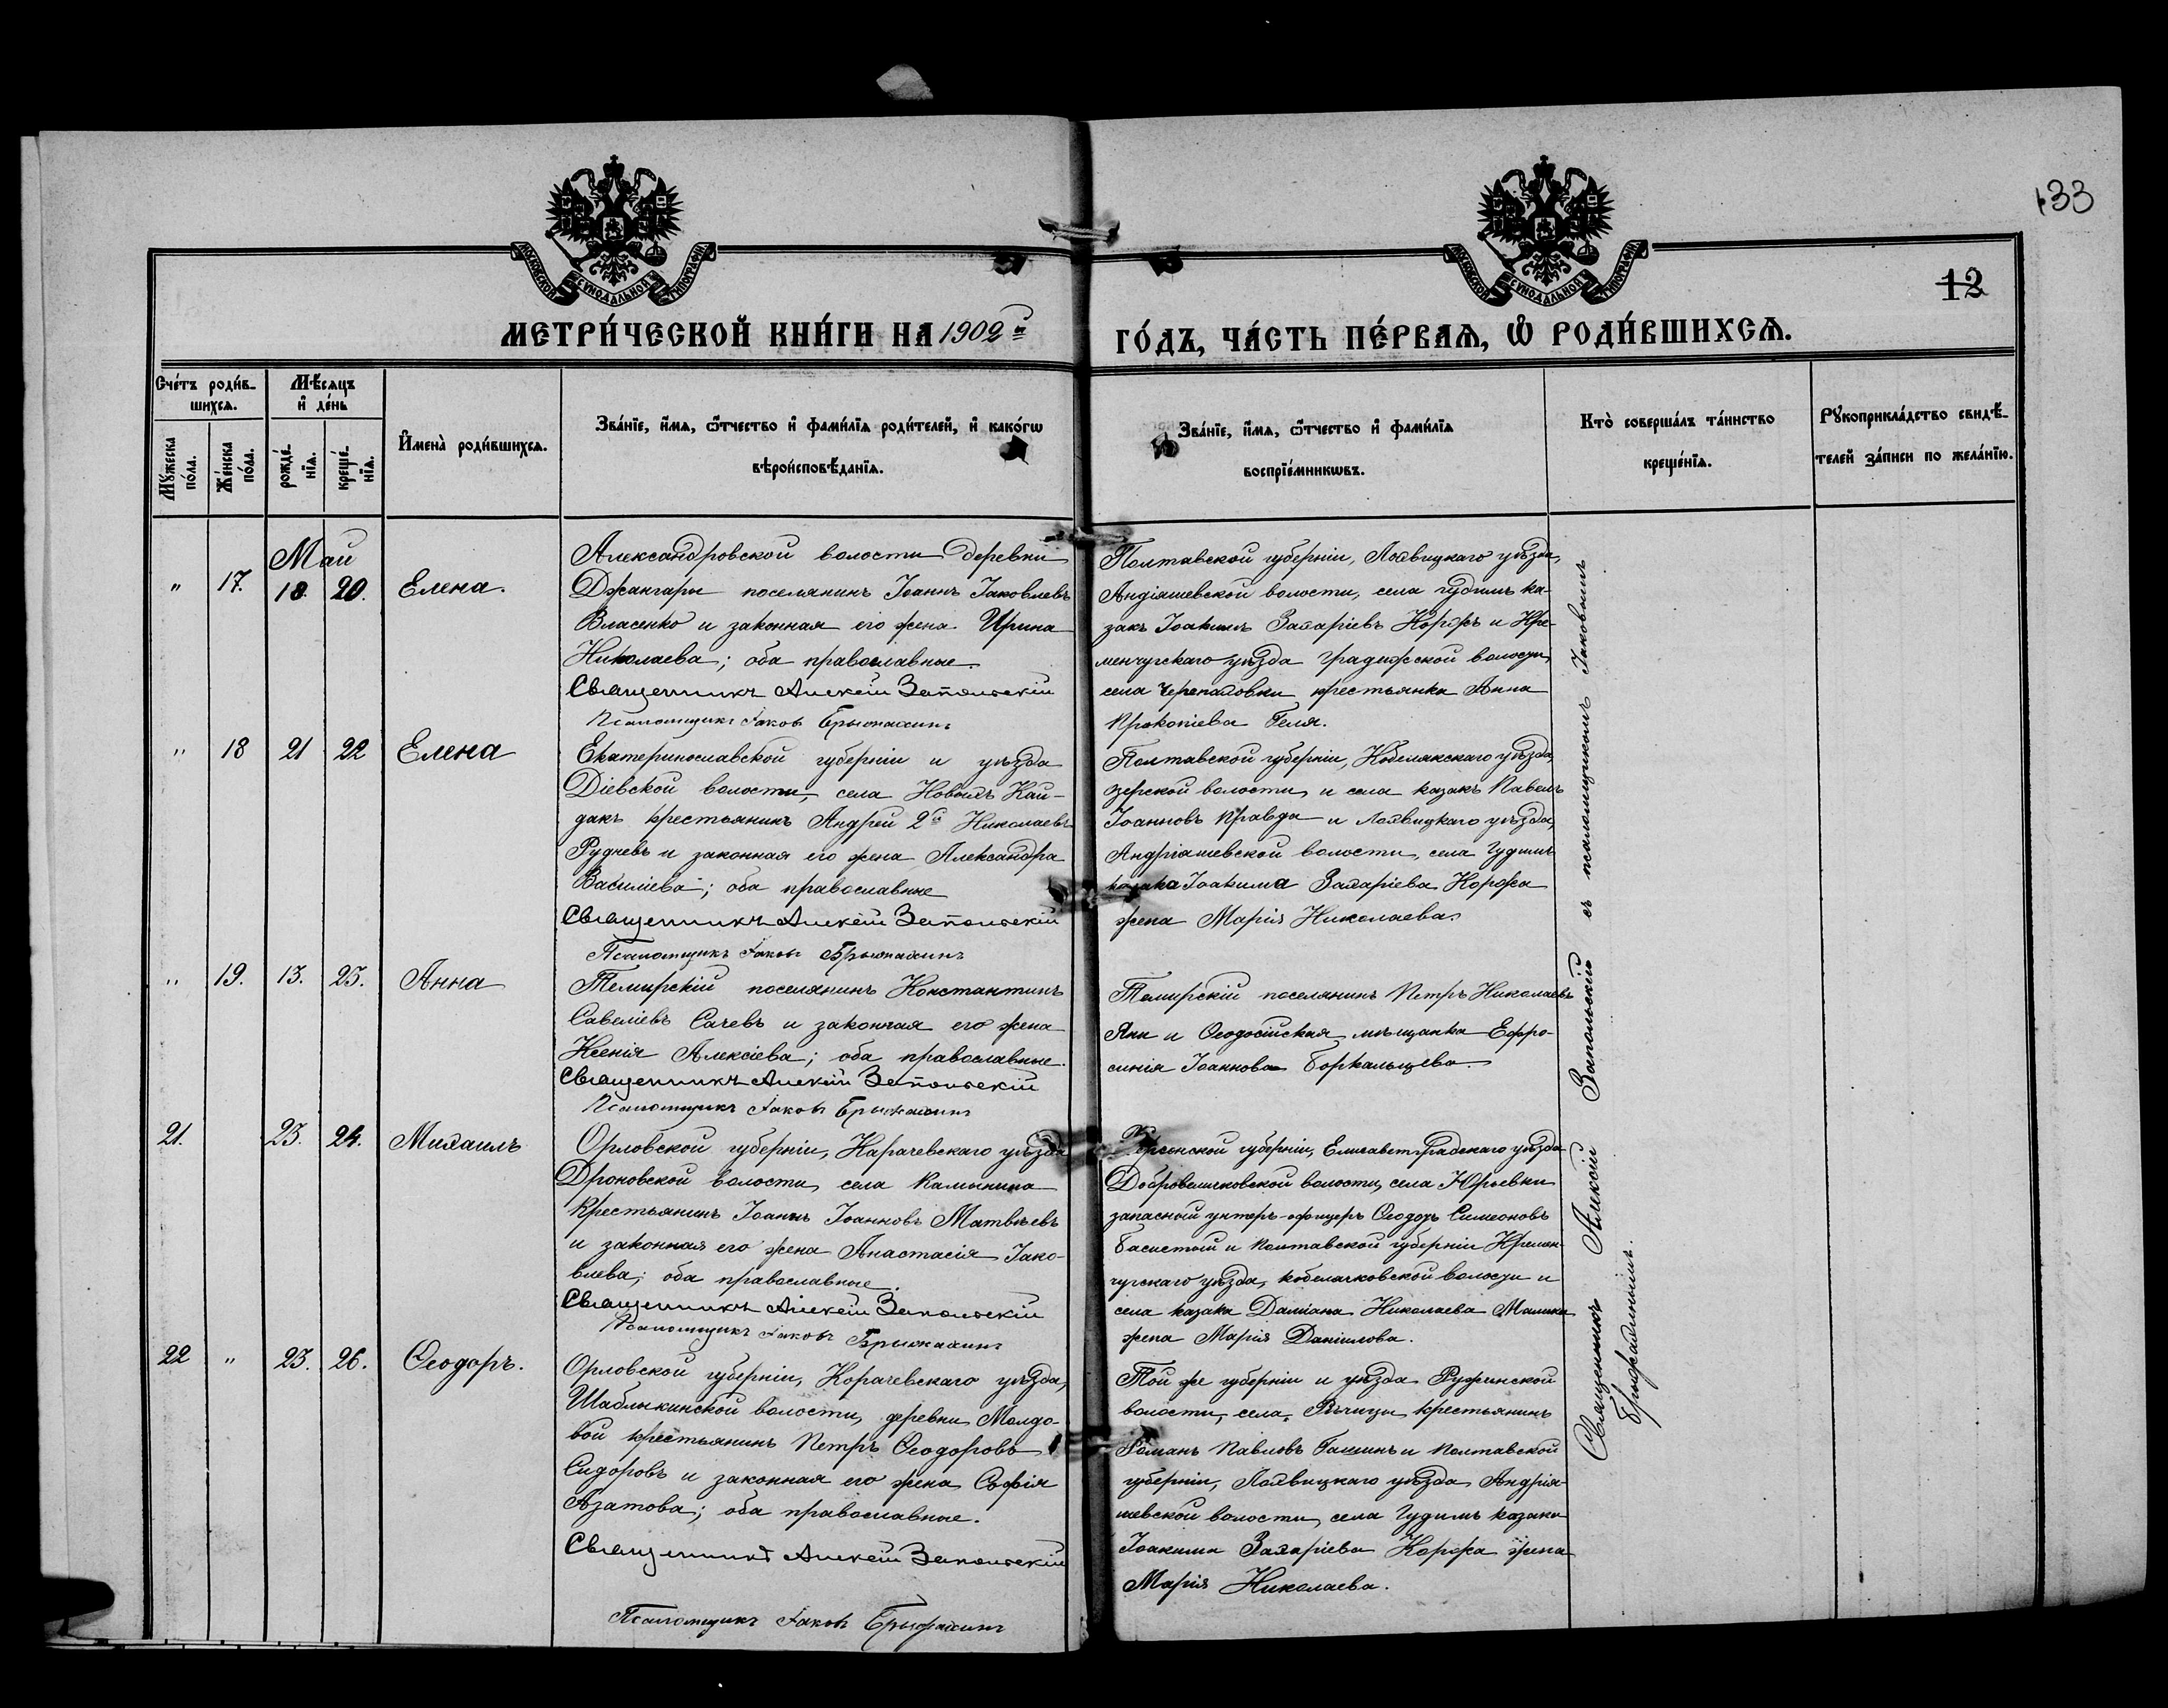 133
12
МОСКОВСКОЙ СѴНОДАЛЬНОЙ ТИПОГРАФІИ
МОСКОВСКОЙ СѴНОДАЛЬНОЙ ТИПОГРАФІИ
МЕТРИ́ЧЕСКОЙ КНИ́ГИ НА 1902й
ГО́ДЪ, ЧА́СТЬ ПЕ́РВАѦ, Ѽ РОДИ́ВШИХСѦ.
Сче́тъ роди́в-
шихсѧ.
Мѣ́сѧцъ
и҆ де́нь
Мꙋ́жеска
по́ла.
Же́нска
по́ла.
рожде́-
нїѧ.
креще́-
нїѧ.
И҆мена̀ роди́вшихсѧ.
Зва́нїе, и҆́мѧ, ѻ҆́тчество и҆ фами́лїѧ роди́телей, и҆ како́гѡ
вѣроисповѣ́данїѧ.
Зва́нїе, и҆́мѧ, ѻ҆́тчество и҆ фами́лїѧ
воспрїе́мникѡвъ.
Кто̀ соверша́лъ та́инство
креще́нїѧ.
Рꙋкоприкла́дство свидѣ́-
телей за́писи по жела́нїю.
Май
" 17. 18. 20. Елена.
Александровской волости деревни
Джангары поселянинъ Іоаннъ Іаковлевъ
Власенко и законная его жена Ирина
Николаева; оба православные.
Священникъ Алексій Запольскій
Псаломщикъ Іаковъ Брыжахинъ
Полтавской губерніи, Лохвицкаго уѣзда,
Андіяшевской волости, села Гудимъ ка-
закъ Іоакимъ Захаріевъ Коржъ и Кре-
менчугскаго уѣзда Градижской волости,
села Черепаховки крестьянка Анна
Прокопіева Геля.
" 18 21 22 Елена
Екатеринославской губерніи и уѣзда
Діевской волости, села Новыхъ Кай-
дакъ крестьянинъ Андрей 2й Николаевъ
Рудневъ и законная его жена Александра
Василіева; оба православные
Священникъ Алексій Запольскій
Псаломщикъ Іаковъ Брыжахинъ
Полтавской губерніи, Кобелякскаго уѣзда,
Озерской волости и села казакъ Павелъ
Іоанновъ Правда и Лохвицкаго уѣзда,
Андріяшевской волости, села Гудимъ
казака Іоакима Захаріева Коржа
жена Марія Николаева.
" 19. 13. 23. Анна
Темирскій поселянинъ Константинъ
Савеліевъ Сачевъ и законная его жена
Ксенія Алексіева; оба православные.
Священникъ Алексій Запольскій
Псаломщикъ Іаковъ Брыжахинъ
Темирскій поселянинъ Петръ Николаевъ
Яни и Ѳеодосійская мѣщанка Ефро-
синія Іоаннова
21. 23. 24. Михаилъ
Орловской губерніи, Карачевскаго уѣзда
Дроновской волости, села Камынина
крестьянинъ Іоаннъ Іоанновъ Матвѣевъ
и законная его жена Анастасія Іако-
влева; оба православные.
Священникъ Алексій Запольскій
Псаломщикъ Іаковъ Брыжахинъ
Херсонской губерніи, Елисаветградскаго уѣзда
Добровеличковской волости, села Юрьевки
запасный унтеръ-офицеръ Ѳеодоръ Симеоновъ
Басистый и Полтавской губерніи Кремен-
чугскаго уѣзда, Кобелячковской волости и
села казака Даміана Николаева
жена Марія Даніилова.
22 " 23. 26. Ѳеодоръ.
Орловской губерніи, Карачевскаго уѣзда,
Шаблыкинской волости, деревни Молдо-
вой крестьянинъ Петръ Ѳеодоровъ
Сидоровъ и законная его жена Софія
Азатова; оба православные.
Священникъ Алексій Запольскій
Псаломщикъ Іаковъ Брыжахинъ
Той же губерніи и уѣзда Руженской
волости, села, Рѣчицы крестьянинъ
Романъ Павловъ Гашинъ и Полтавской
губерніи, Лохвицкаго уѣзда Андрія-
шевской волости, села Гудимъ казака
Іоакима Захаріева Коржа жена
Марія Николаева.
Священникъ Алексій Запольскій съ псаломщикомъ Іаковомъ
Брыжахинымъ.